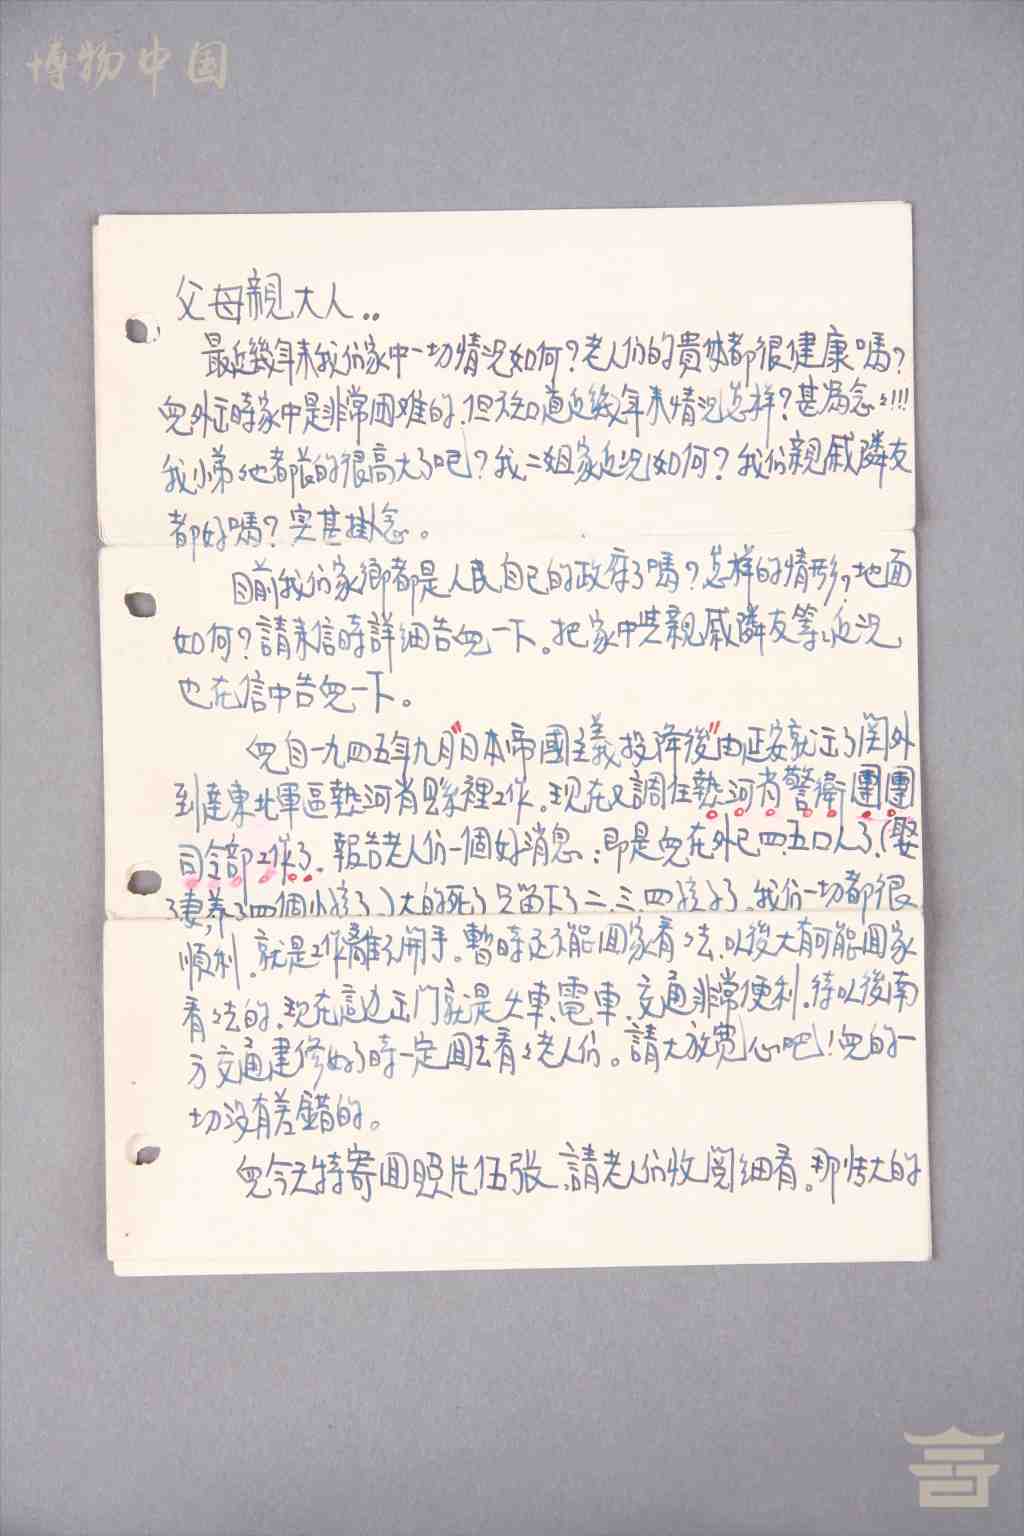 博物中国
父母親大人..
最近幾年来我们家中一切情况如何?老人们的貴体都很健康嗎?
兒外出時家中是非常困难的,但不知道近幾年来情况怎样?甚為念々!!!
我小弟他都长的很高大了吧?我二姐家近况如何?我们親戚隣友
都好嗎?实甚掛念。
目前我们家鄉都是人民自己的政府了嗎?怎样的情形,地面
如何?請来信時詳細告兒一下。把家中其親戚隣友等近况
也在信中告兒一下。
兒自一九四五年九月"日本帝國主義投降後"由延安就出了関外
到達東北軍區熱河省縣裡工作。现在又調住熱河省警衛團團
司令部工作了。報告老人们一個好消息:即是兒在外已四.五口人了、(娶
了妻,养了四個小孩了)大的死了只留下了二、三、四孩子了、我们一切都很
順利。就是工作離不開手。暫時还不能回家看々去、以後大有可能回家
看々去的、现在這边出门就是火車、電車、交通非常便利、待以後南
方交通建修好了時一定回去看々老人们。請大放寬心吧!兒的一
切没有差錯的。
兒今天特寄回照片伍张、請老人们收閲細看。那张大的